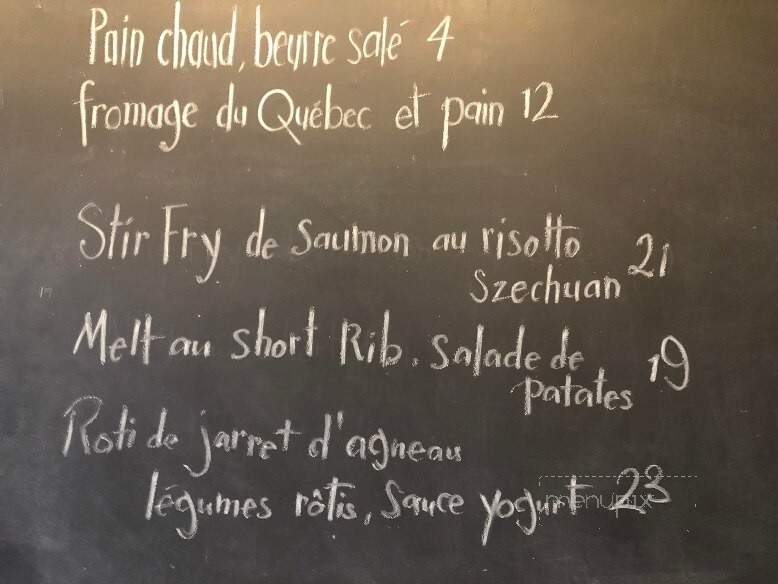 Pain chaud, beurre salé 4
fromage du Québec et pain 12
Stir Fry de Saumon au risotto
Szechuan 21
Melt au short Rib. Salade de
patates 19
Roti de jarret d'agneau
légumes rôtis, Sauce yogurt 23
menupix